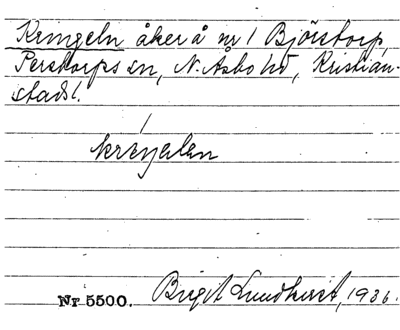 Kringeln åker å nr 1 Björstorp,
Perstorps sn, N. Åsbo hd, Kristian-
stads l.
Nr 5500. Birgit Lundkvist, 1936.